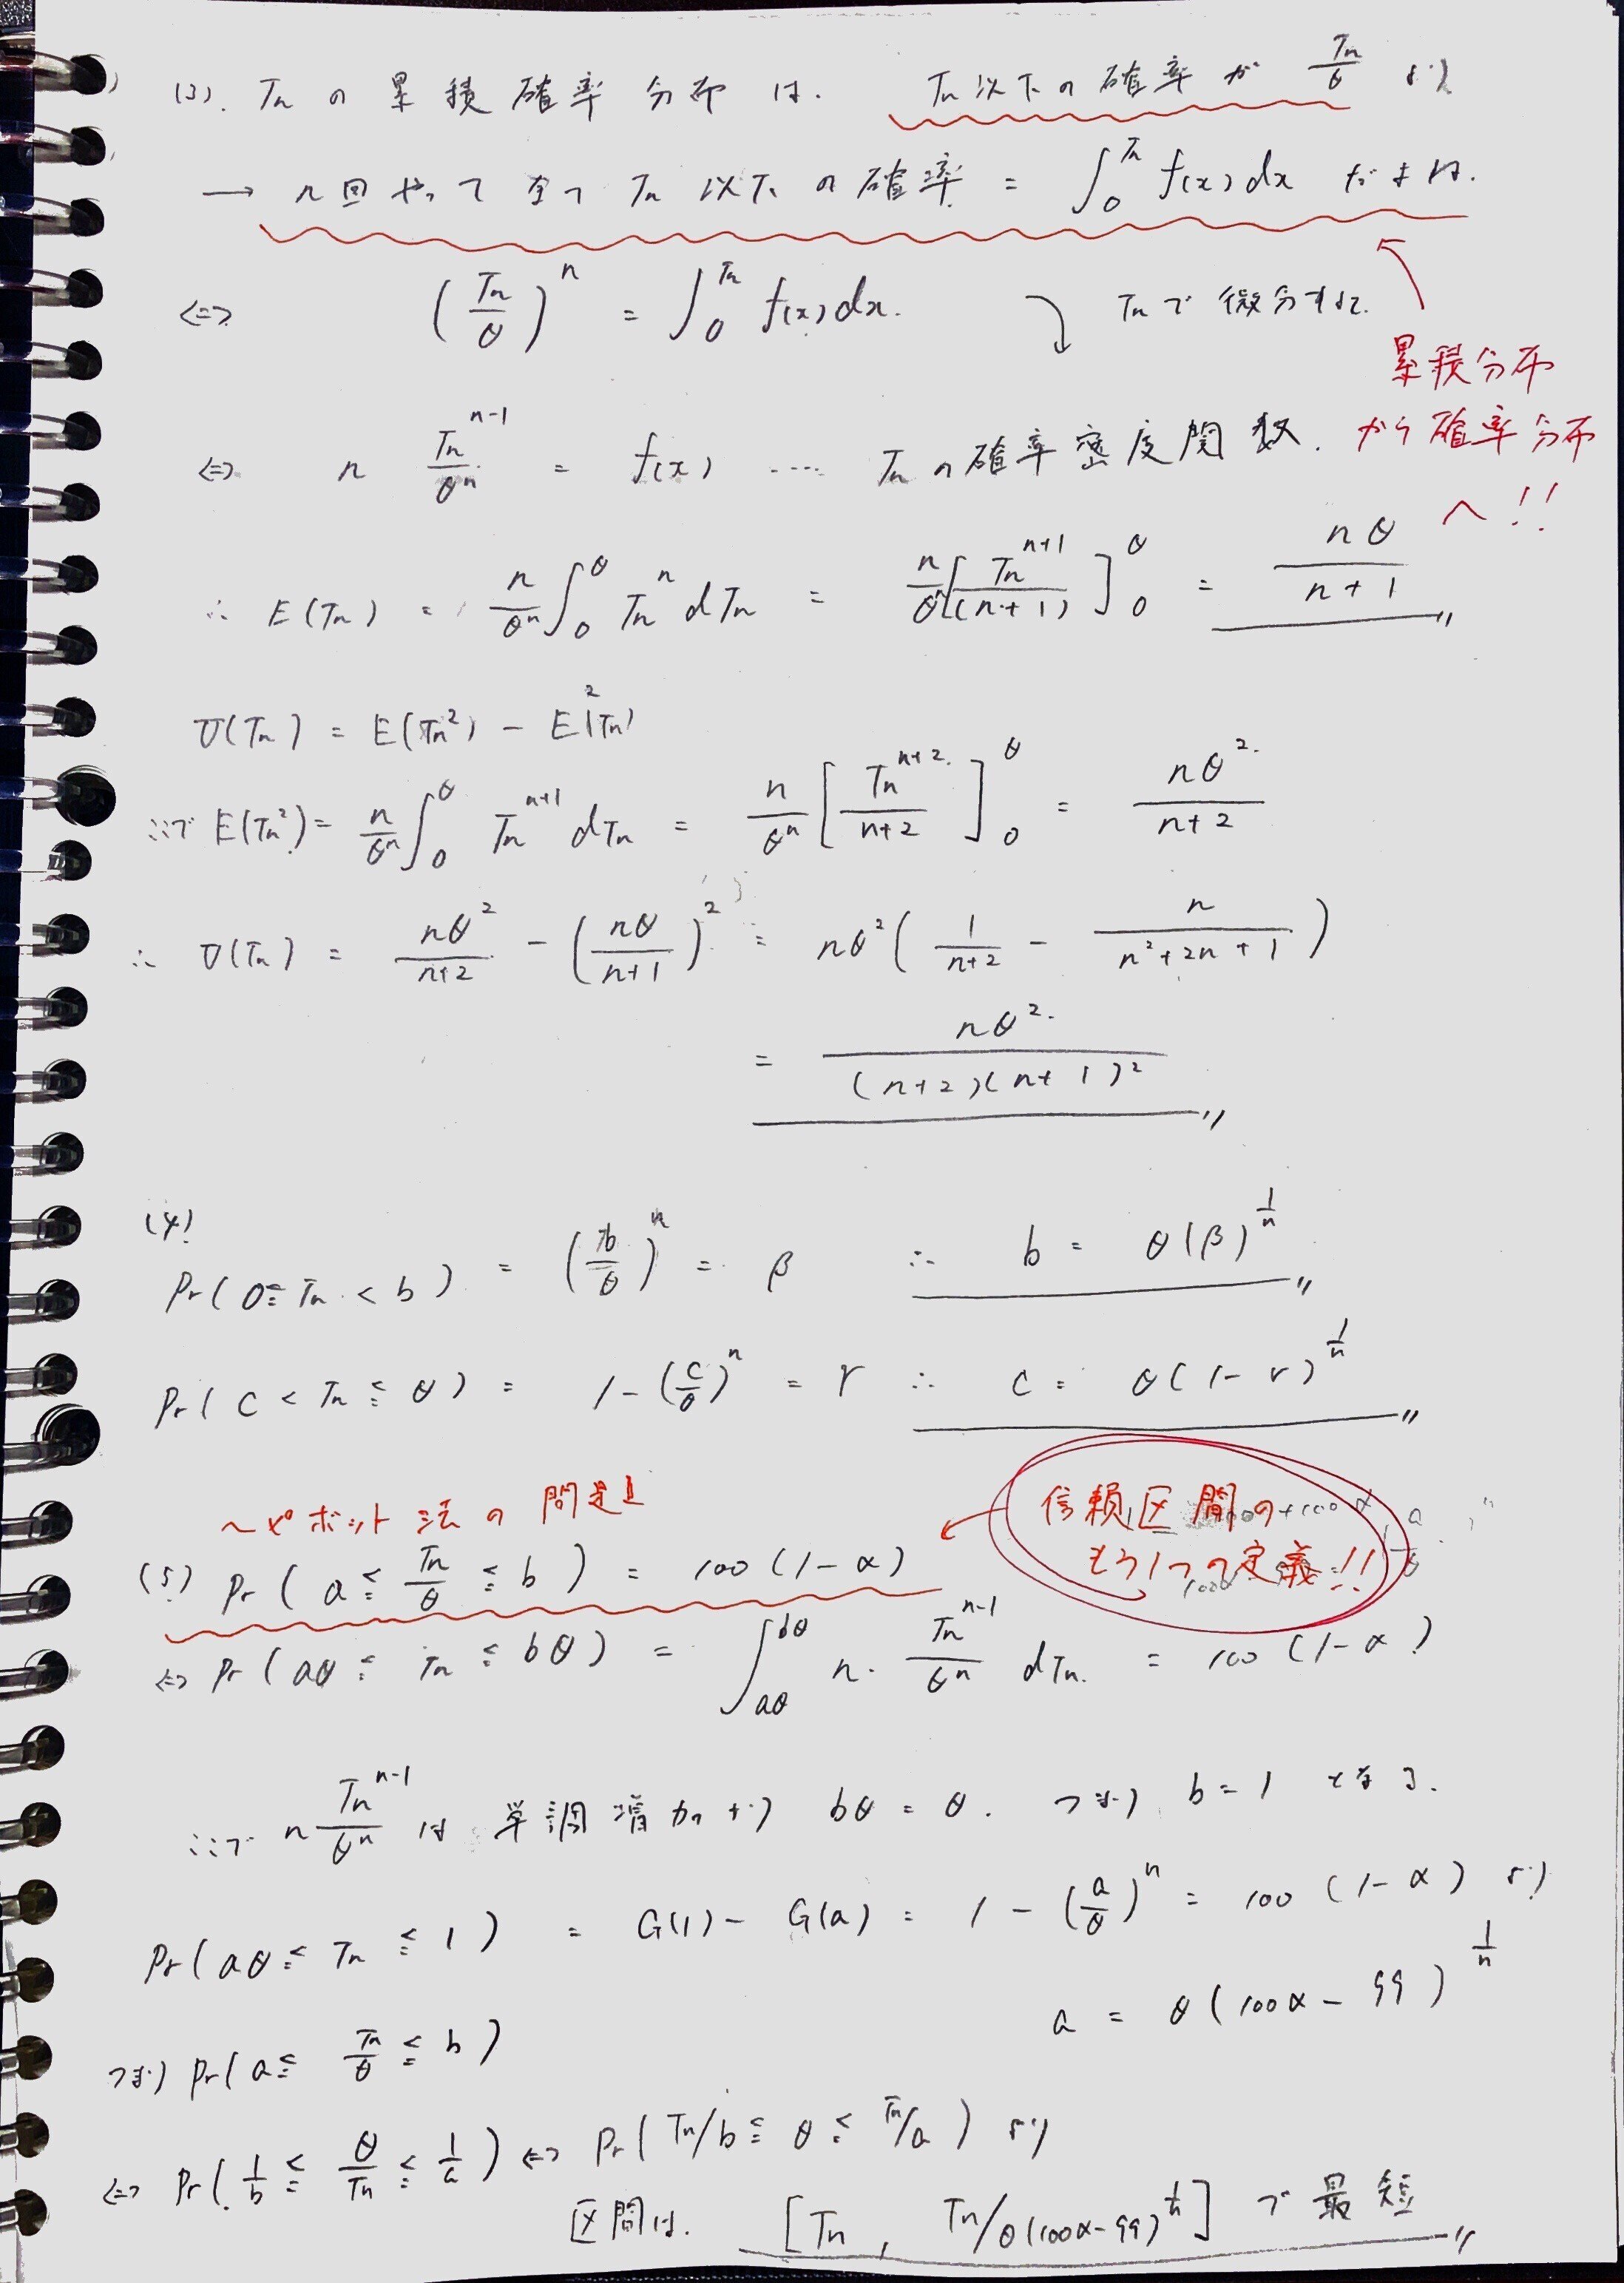 (3). Tn の 累積確率分布は. Tn以下の確率が Tn/θ より
→ n回やって全てTn以下の確率 = ∫_0^Tn f(x)dx だまは.
⇔ (Tn/θ)^n = ∫_0^Tn f(x)dx. Tnで微分すると.
累積分布
から確率分布
へ!!
⇔ n Tn^(n-1)/θ^n = f(x) ‥‥ Tnの確率密度関数.
∴ E(Tn) = n/θ^n ∫_0^θ Tn^n dTn = n/θ^n [Tn^(n+1)/(n+1)]_0^θ = nθ/(n+1)
V(Tn) = E(Tn^2) - E^2(Tn)
ここで E(Tn^2) = n/θ^n ∫_0^θ Tn^(n+1) dTn = n/θ^n [Tn^(n+2)/(n+2)]_0^θ = nθ^2/(n+2)
∴ V(Tn) = nθ^2/(n+2) - (nθ/(n+1))^2 = nθ^2 (1/(n+2) - n/(n^2+2n+1))
= nθ^2/((n+2)(n+1)^2)
(4)
Pr(0≦Tn<b) = (b/θ)^n = β ∴ b = θ(β)^(1/n)
Pr(C<Tn≦θ) = 1-(C/θ)^n = r ∴ C = θ(1-r)^(1/n)
〜ピボット法の問題
信頼区間の
もう1つの定義!!
(5) Pr(a≦Tn/θ≦b) = 100(1-α)
⇔ Pr(aθ≦Tn≦bθ) = ∫_aθ^bθ n・Tn^(n-1)/θ^n dTn = 100(1-α)
ここで n Tn^(n-1)/θ^n は 単調増加より bθ=θ. つまり b=1 となる.
Pr(aθ≦Tn≦1) = G(1)-G(a) = 1-(a/θ)^n = 100(1-α) より
a = θ(100α-99)^(1/n)
つまり Pr(a≦Tn/θ≦b)
⇔ Pr(1/b≦θ/Tn≦1/a) ⇔ Pr(Tn/b≦θ≦Tn/a) より
区間は. [Tn, Tn/θ(100α-99)^(1/n)] で最短